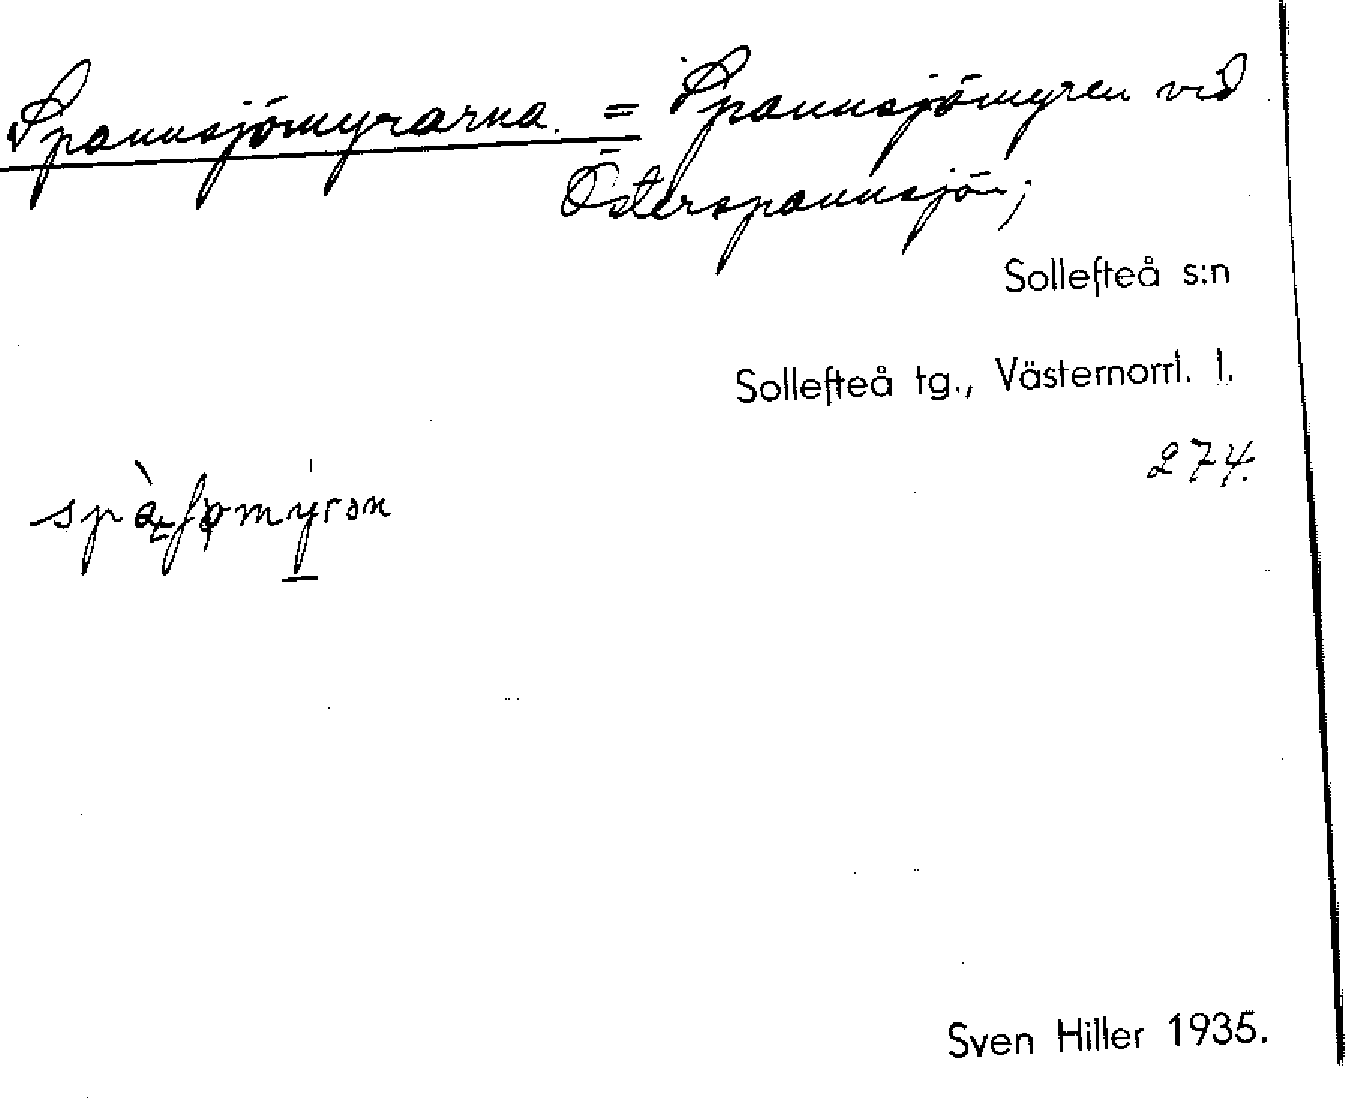 Spannsjömyrarna. = Spannsjömyren vid
Österspannsjön;
Sollefteå s:n
Sollefteå tg., Västernorrl. l.
274.
Sven Hiller 1935.